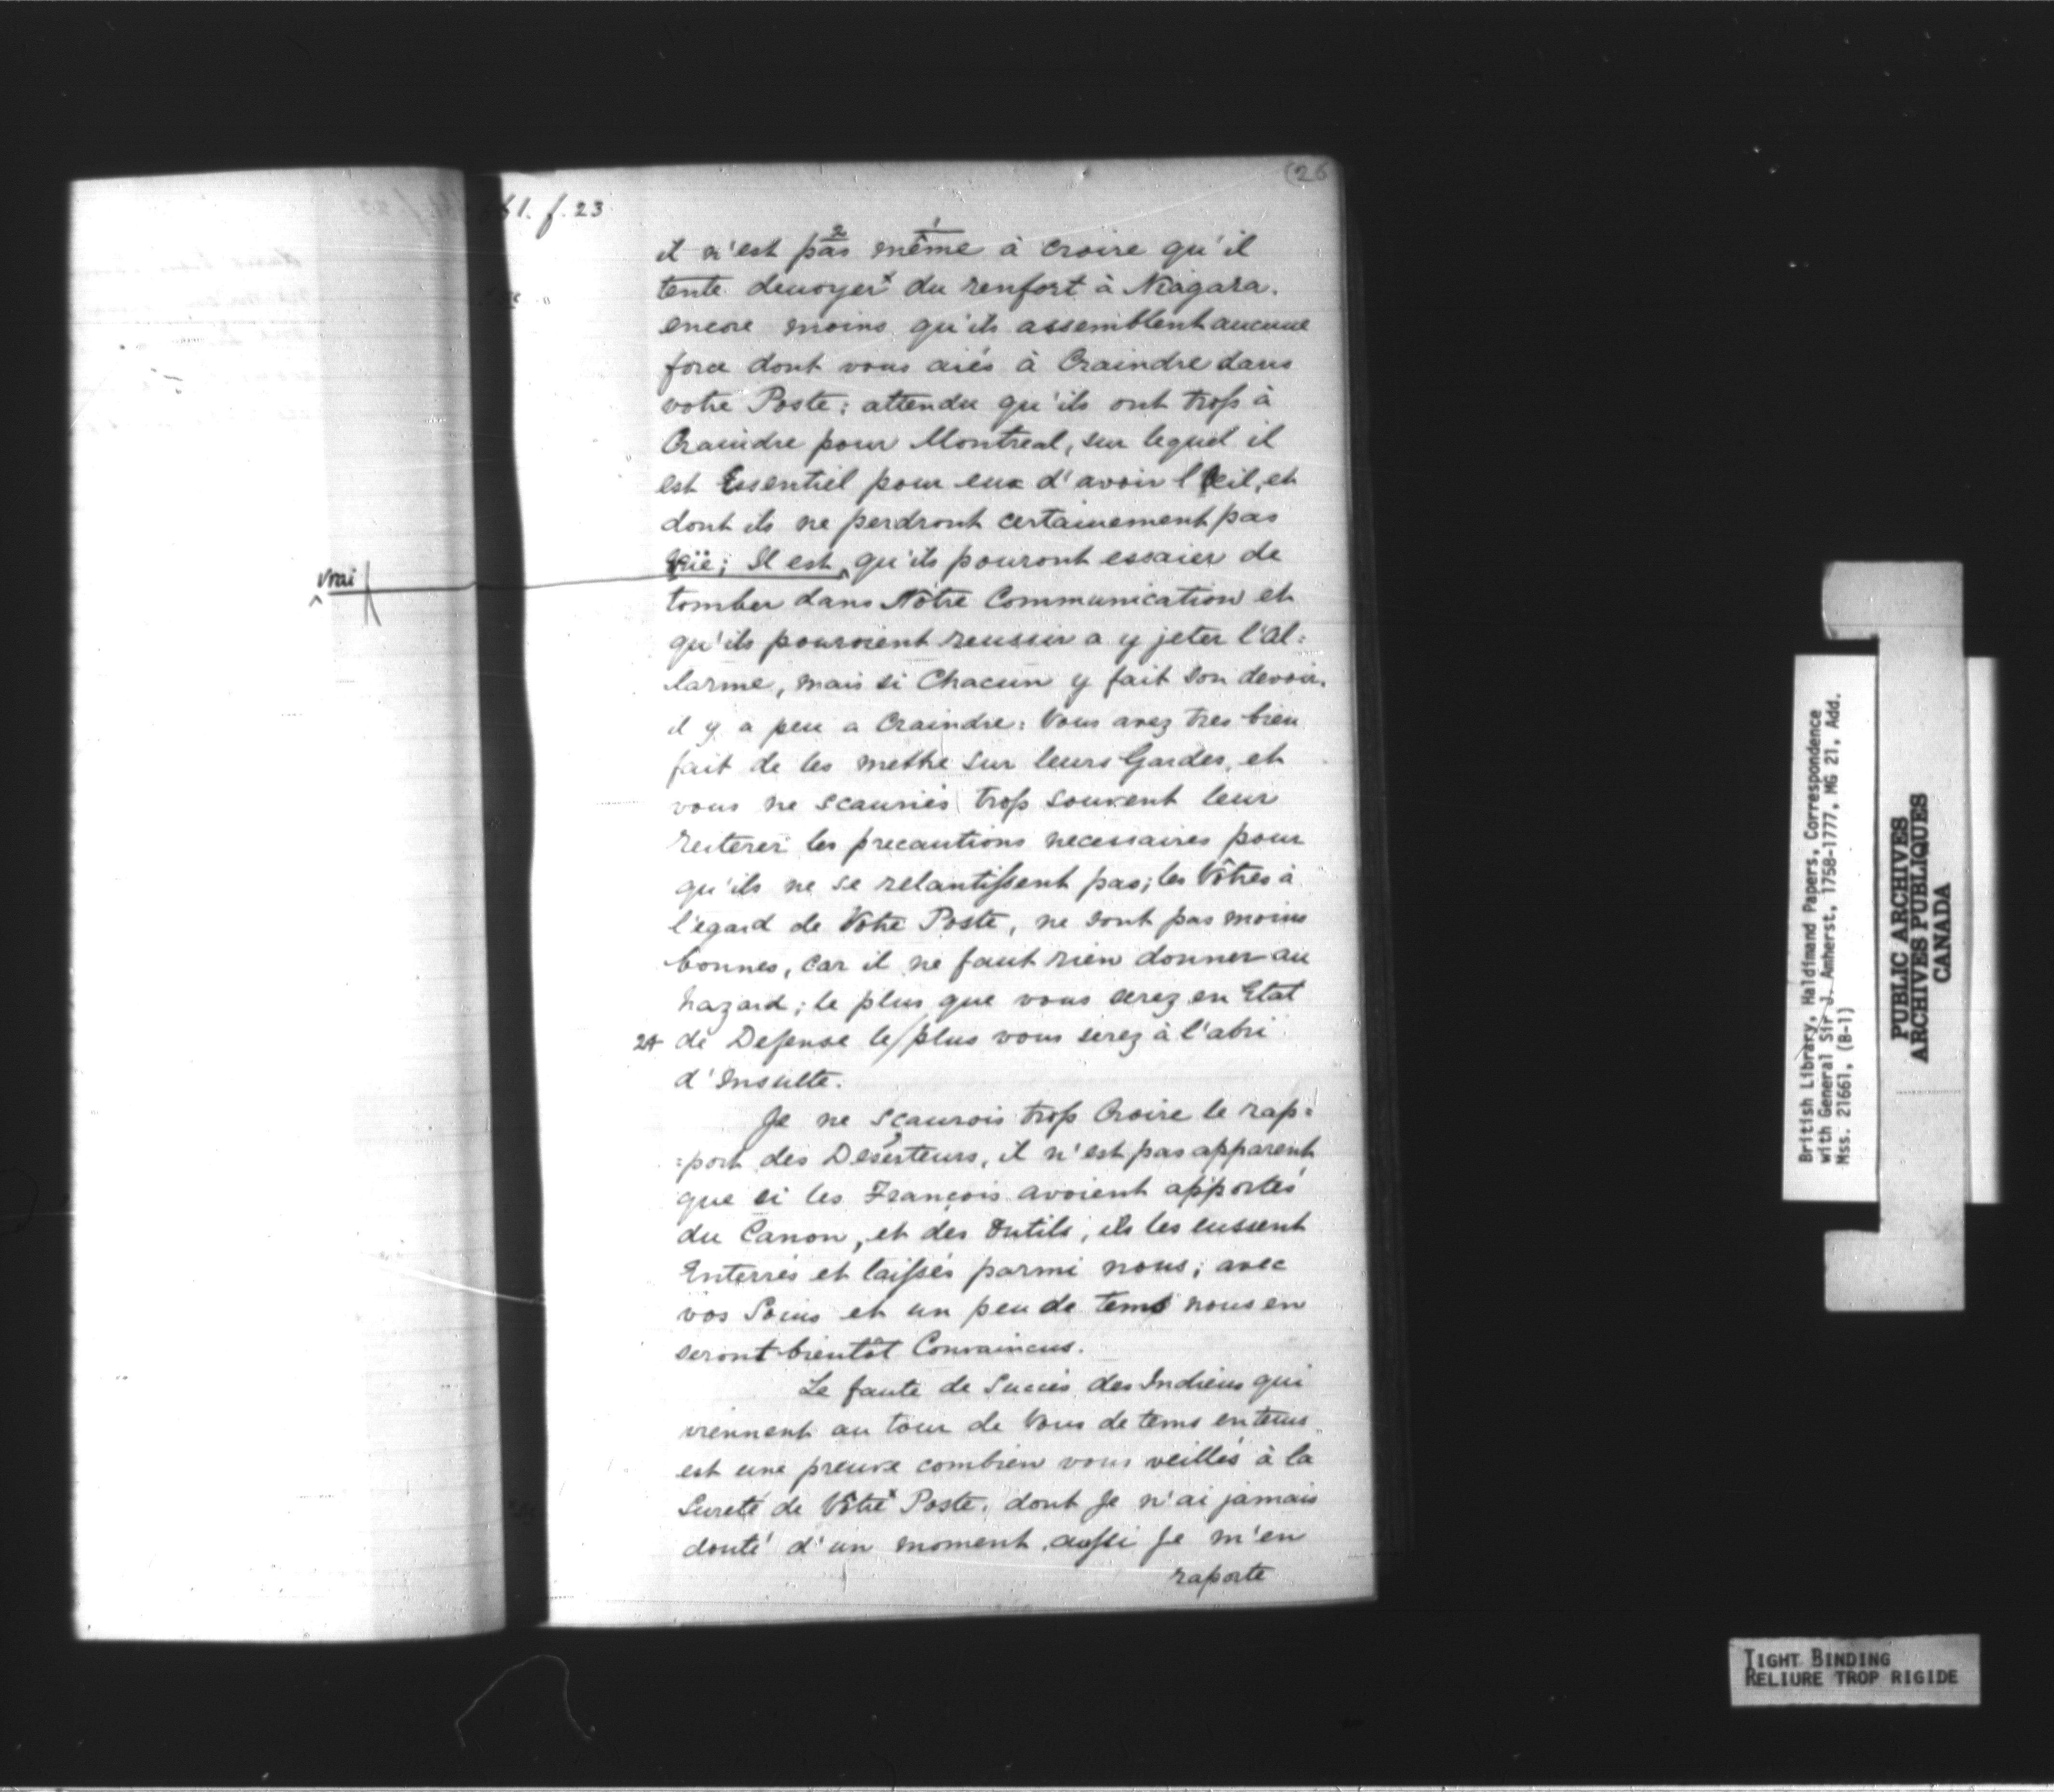 (26
61. f. 23
2 1
il n'est pas même à croire qu'il
tente denvoyer x du renfort à Niagara.
encore moins qu'ils assemblent aucune
force dont vous aiés à Craindre dans
votre Poste; attendu qu'ils ont trop à
Craindre pour Montreal, sur lequel il
est Essentiel pour eux d'avoir l'Oeil, et
dont ils ne perdront certainement pas
Vüe; Il est ^ qu'ils pouront essaier de
vrai
tomber dans Nôtre Communication et
qu'ils pouroient reussir a y jeter l'al=
larme, mais si Chacun y fait son devoir.
il y a peu a Craindre: Vous avez tres bien
fait de les mettre sur leurs Gardes, et
vous ne scauriés trop souvent leur
reiterer les precautions necessaires pour
qu'ils ne se relantissent pas; les Vôtres à
l'egard de Votre Poste, ne sont pas moins
bonnes, car il ne faut rien donner au
hazard; le plus que vous serez en Etat
24 de Defense le/plus vous serez à l'abri
d'Insulte.
Je ne scaurois trop Croire le rap=
=port des Déserteurs, il n'est pas apparent
que si les François avoient apportés
du Canon, et des Outils, ils les eussent
Enterrés et laissés parmi nous; avec
vos Soins et un peu de tems nous en
seront bientôt Convaincus.
Le faute de Succès des Indiens qui
viennent au tour de Vous de tems en tems
est une preuve combien vous veillés à la
Sureté de Vôtre x Poste. dont Je n'ai jamais
douté d'un moment, aussi Je m'en
raporte
British Library, Haldimand Papers, Correspondence
with General Sir J. Amherst, 1758-1777, MG 21, Add.
Mss. 21661, (B-1)
PUBLIC ARCHIVES
ARCHIVES PUBLIQUES
CANADA
TIGHT BINDING
RELIURE TROP RIGIDE